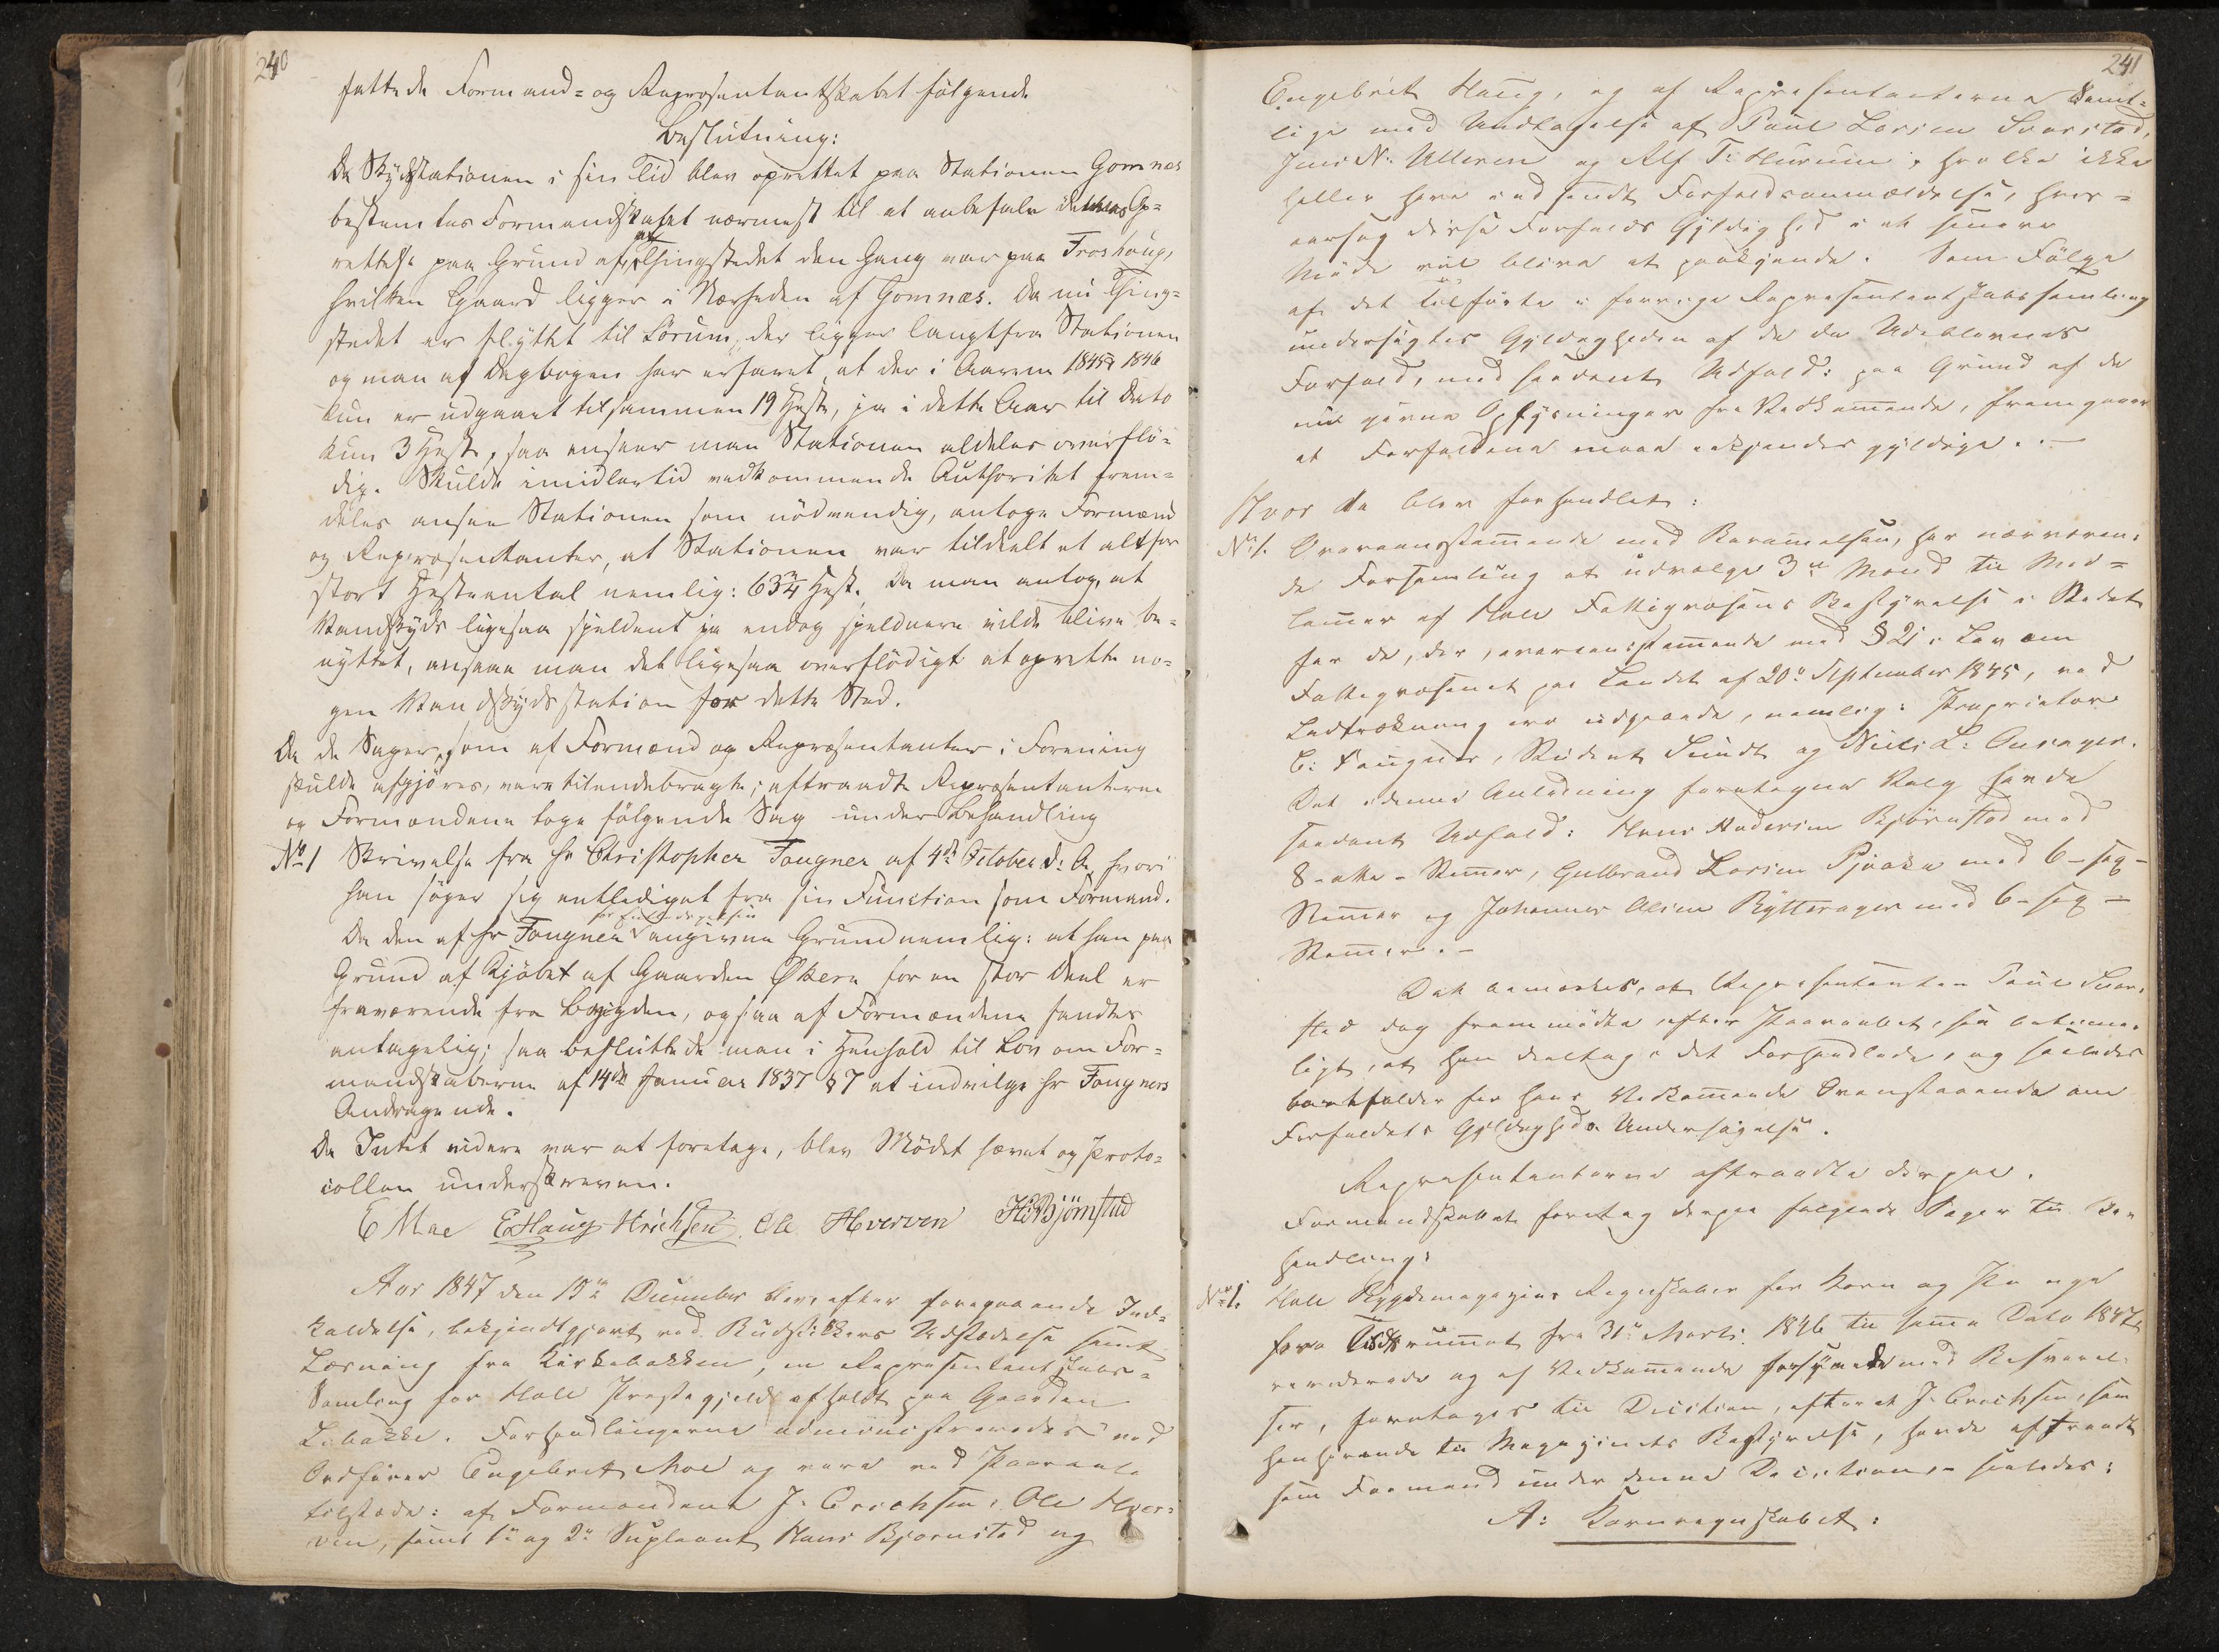 240
fattede Formand- og Repræsentantskabet følgende
Beslutning:
Da Skydsstationen i sin Tid blev oprettet paa Stationen Gomnæs
bestemtes Formandskabet nærmest til at anbefale dennes Op-
rettelse paa Grund af, at Thingstedet den Gang var paa Froshaug,
hvilken Gaard ligger i Nærheden af Gomnæs. Da nu Thing-
stedet er flyttet til Sørum, der ligger langt fra Stationen
og man af Dagbogen har erfaret, at der i Aarene 1845 & 1846
kun er udgaaet tilsammen 19 Heste, ja i dette Aar til Dato
kun 3 Heste, saa anseer man Stationen aldeles overflø-
dig. Skulde imidlertid vedkommende Authoritet frem-
deles ansee Stationen som nødvendig, antoge Formænd
og Repræsentanter, at Stationen var tildeelt et altfor
stort Hesteantal nemlig: 63 3/4 Hest. Da man antog, at
Vandskyds ligesaa sjeldent ja endog sjeldnere vilde blive be-
nyttet, ansaae man det ligesaa overflødigt at oprette no-
gen Vandskydsstation for dette Sted.
Da de Sager, som af Formænd og Repræsentanter i Forening
skulde afgjøres, vare tilendebragte; aftraadte Repræsentanterne
og Formændene toge følgende Sag under Behandling
No 1 Skrivelse fra Hr Christopher Fougner af 4de October d: A. hvori
han søger sig entlediget fra sin Function som Formand.
for Entledigelsen
Da den af Hr Fougner angivne Grund nemlig: at han paa
Grund af Kjøbet af Gaarden Økern for en stor Deel er
fraværende fra Bygden, ogsaa af Formændene fandtes
antagelig; saa besluttede man i Henhold til Lov om For-
mandskaberne af 14de Januar 1837 § 7 at indvilge Hr Fougners
Andragende.
Da Intet videre var at foretage, blev Mødet hævet og Proto-
collen underskreven.
E Moe EHaug Hrichsen Ole Hverven HBjörnstad
Aar 1847 den 15de December blev efter foregaaende Ind-
kaldelse, bekjendtgjort ved Budstikkers Udstædelse samt
Læsning fra Kirkebakken, en Repræsentantskabs-
Samling for Hole Præstegjeld afholdt paa Gaarden
Libakke. Forhandlingerne administreredes ved
Ordfører Engebret Moe og vare ved Paaraab
tilstæde: af Formændene J. Erichsen, Ole Hver-
ven, samt 1e og 2e Supleant Hans Bjørnstad og
241
Engebret Haug, og af Repræsentanterne samt-
lige med Undtagelse af Paul Larsen Svarstad,
Jens N. Ulleren og Alf T: Hurum, hvilke ikke
heller have indsendt Forfaldsanmældelse, hvor-
aarsag disse Forfalds Gyldighed i et senere
Møde vil blive at paakjende. Som Følge
af det Tilførte i forrige Repræsentantskabssamling
undersøgtes Gyldigheden af de da Udeblevnes
Forfald, med saadant Udfald: paa Grund af de
nu givne Oplysninger fra Vedkommende, fremgaaer
at Forfaldene maae erkjendes gyldige. —
Hvor da blev forhandlet:
No 1. Overeensstemmende med Berammelsen, har nærværen-
de Forsamling at udvælge 3de Mænd til Med-
lemmer af Hole Fattigvæsens Bestyrelse i Stedet
for de, der, overeensstemmende med § 21 i Lov om
Fattigvæsenet paa Landet af 20de September 1845, ved
Lodtrækning ere udgaaede, nemlig: Proprietær
C: Fougner, Student Sundt og Niels L: Onsager.
Det i denne Anledning foretagne Valg havde
saadant Udfald: Hans Andersen Bjørnstad med
8 - otte - Stemmer, Gulbrand Larsen Pjaaka med 6 - sex -
Stemmer og Johannes Olsen Rytterager med 6 - sex -
Stemmer. —
Det bemærkes, at Repræsentanten Paul Svar-
stad dog fremmødte efter Paaraabet, saa betime-
ligt, at han deeltog i det Forhandlede, og saaledes
bortfalder for hans Vedkommende Ovenstaaende om
Forfaldets Gyldigheds Undersøgelse.
Repræsentanterne aftraadte derpaa.
Formandskabet foretog derpaa følgende Sager til Be-
handling:
No 1. Hole Bygdemagazins Regnskaber for Korn og Penge
for Tidsrummet fra 31e Marts 1846 til samme Dato 1847,
reviderede og af Vedkommende forsynede med Besvarel-
ser, foretages til Decision, efter at J. Erichsen, som
henhørende til Magazinets Bestyrelse, havde aftraadt
som Formand under denne Decision, - saaledes:
A: Kornregnskabet: